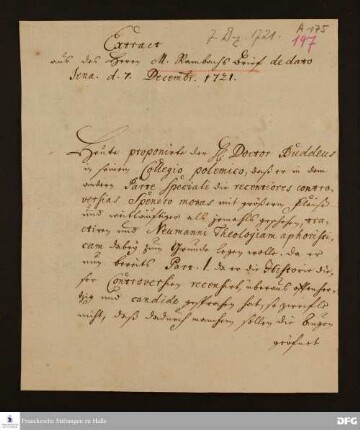 7 Dez. 1721.
A 175
197
Extract
aus des Herrn M. Rambachs Brief de dato
Jena. d. 7. Decembr. 1721.
Heute proponirte der H. Doctor Buddeus
in seinem Collegio polemico, daß er in dem
andern Parte Speciali die recentiores contro-
versias Spenero motas mit größern Fleiß
und weitläuftiger als jemahls geschehen, tra-
ctiren und Neumanni Theologiam aphoristi-
cam dabey zum Grunde legen wolle, da er
nun bereits Part. I. da er die Historie die-
ser Controversien recensirt, überaus offenher-
tzig und candide gesprochen hat, so zweifle
nicht, daß dadurch manchem sollen die Augen
geöfnet
Franckesche Stiftungen zu Halle
DFG